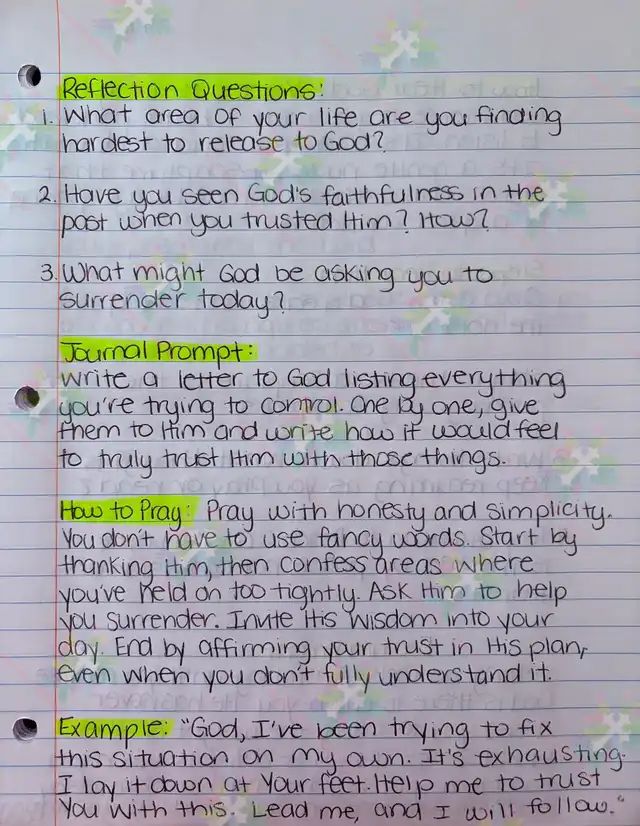 Reflection Questions:
1. What area of your life are you finding
hardest to release to God?
2. Have you seen God's faithfulness in the
past when you trusted Him? How?
3. What might God be asking you to
surrender today?
Journal Prompt:
Write a letter to God listing everything
you're trying to control. One by one, give
them to Him and write how it would feel
to truly trust Him with those things.
How to Pray: Pray with honesty and simplicity.
You don't have to use fancy words. Start by
thanking Him, then confess areas where
you've held on too tightly. Ask Him to help
you surrender. Invite His wisdom into your
day. End by affirming your trust in His plan,
even when you don't fully understand it.
Example: "God, I've been trying to fix
this situation on my own. It's exhausting.
I lay it down at Your feet. Help me to trust
You with this. Lead me, and I will follow."